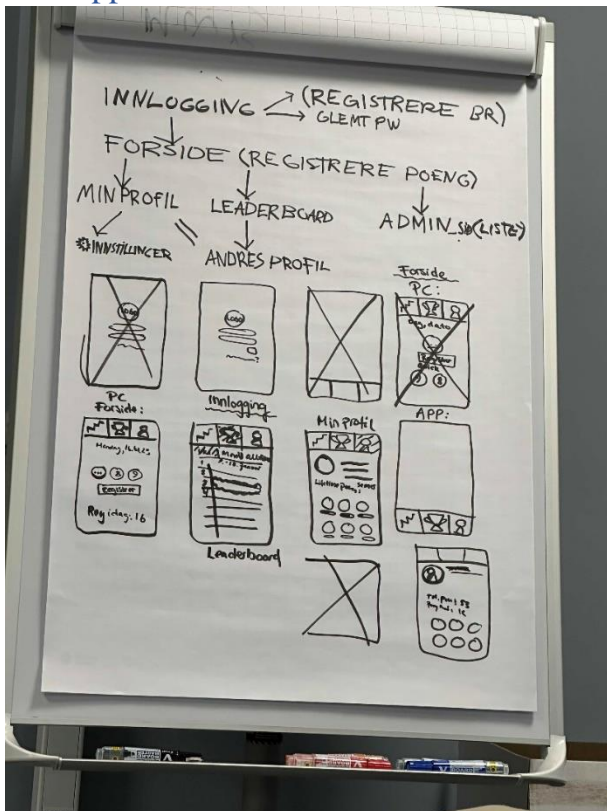 INNLOGGING → (REGISTRERE BR)
→ GLEMT PW
FORSIDE (REGISTRERE POENG)
MIN PROFIL
LEADERBOARD
ADMIN
INNSTILLINGER
ANDRES PROFIL
LOGO
LOGO
Forside
PC:
Registrer
PC
Forside:
Innlogging
Min profil
APP:
Registrer
Reg idag: 16
Leaderboard